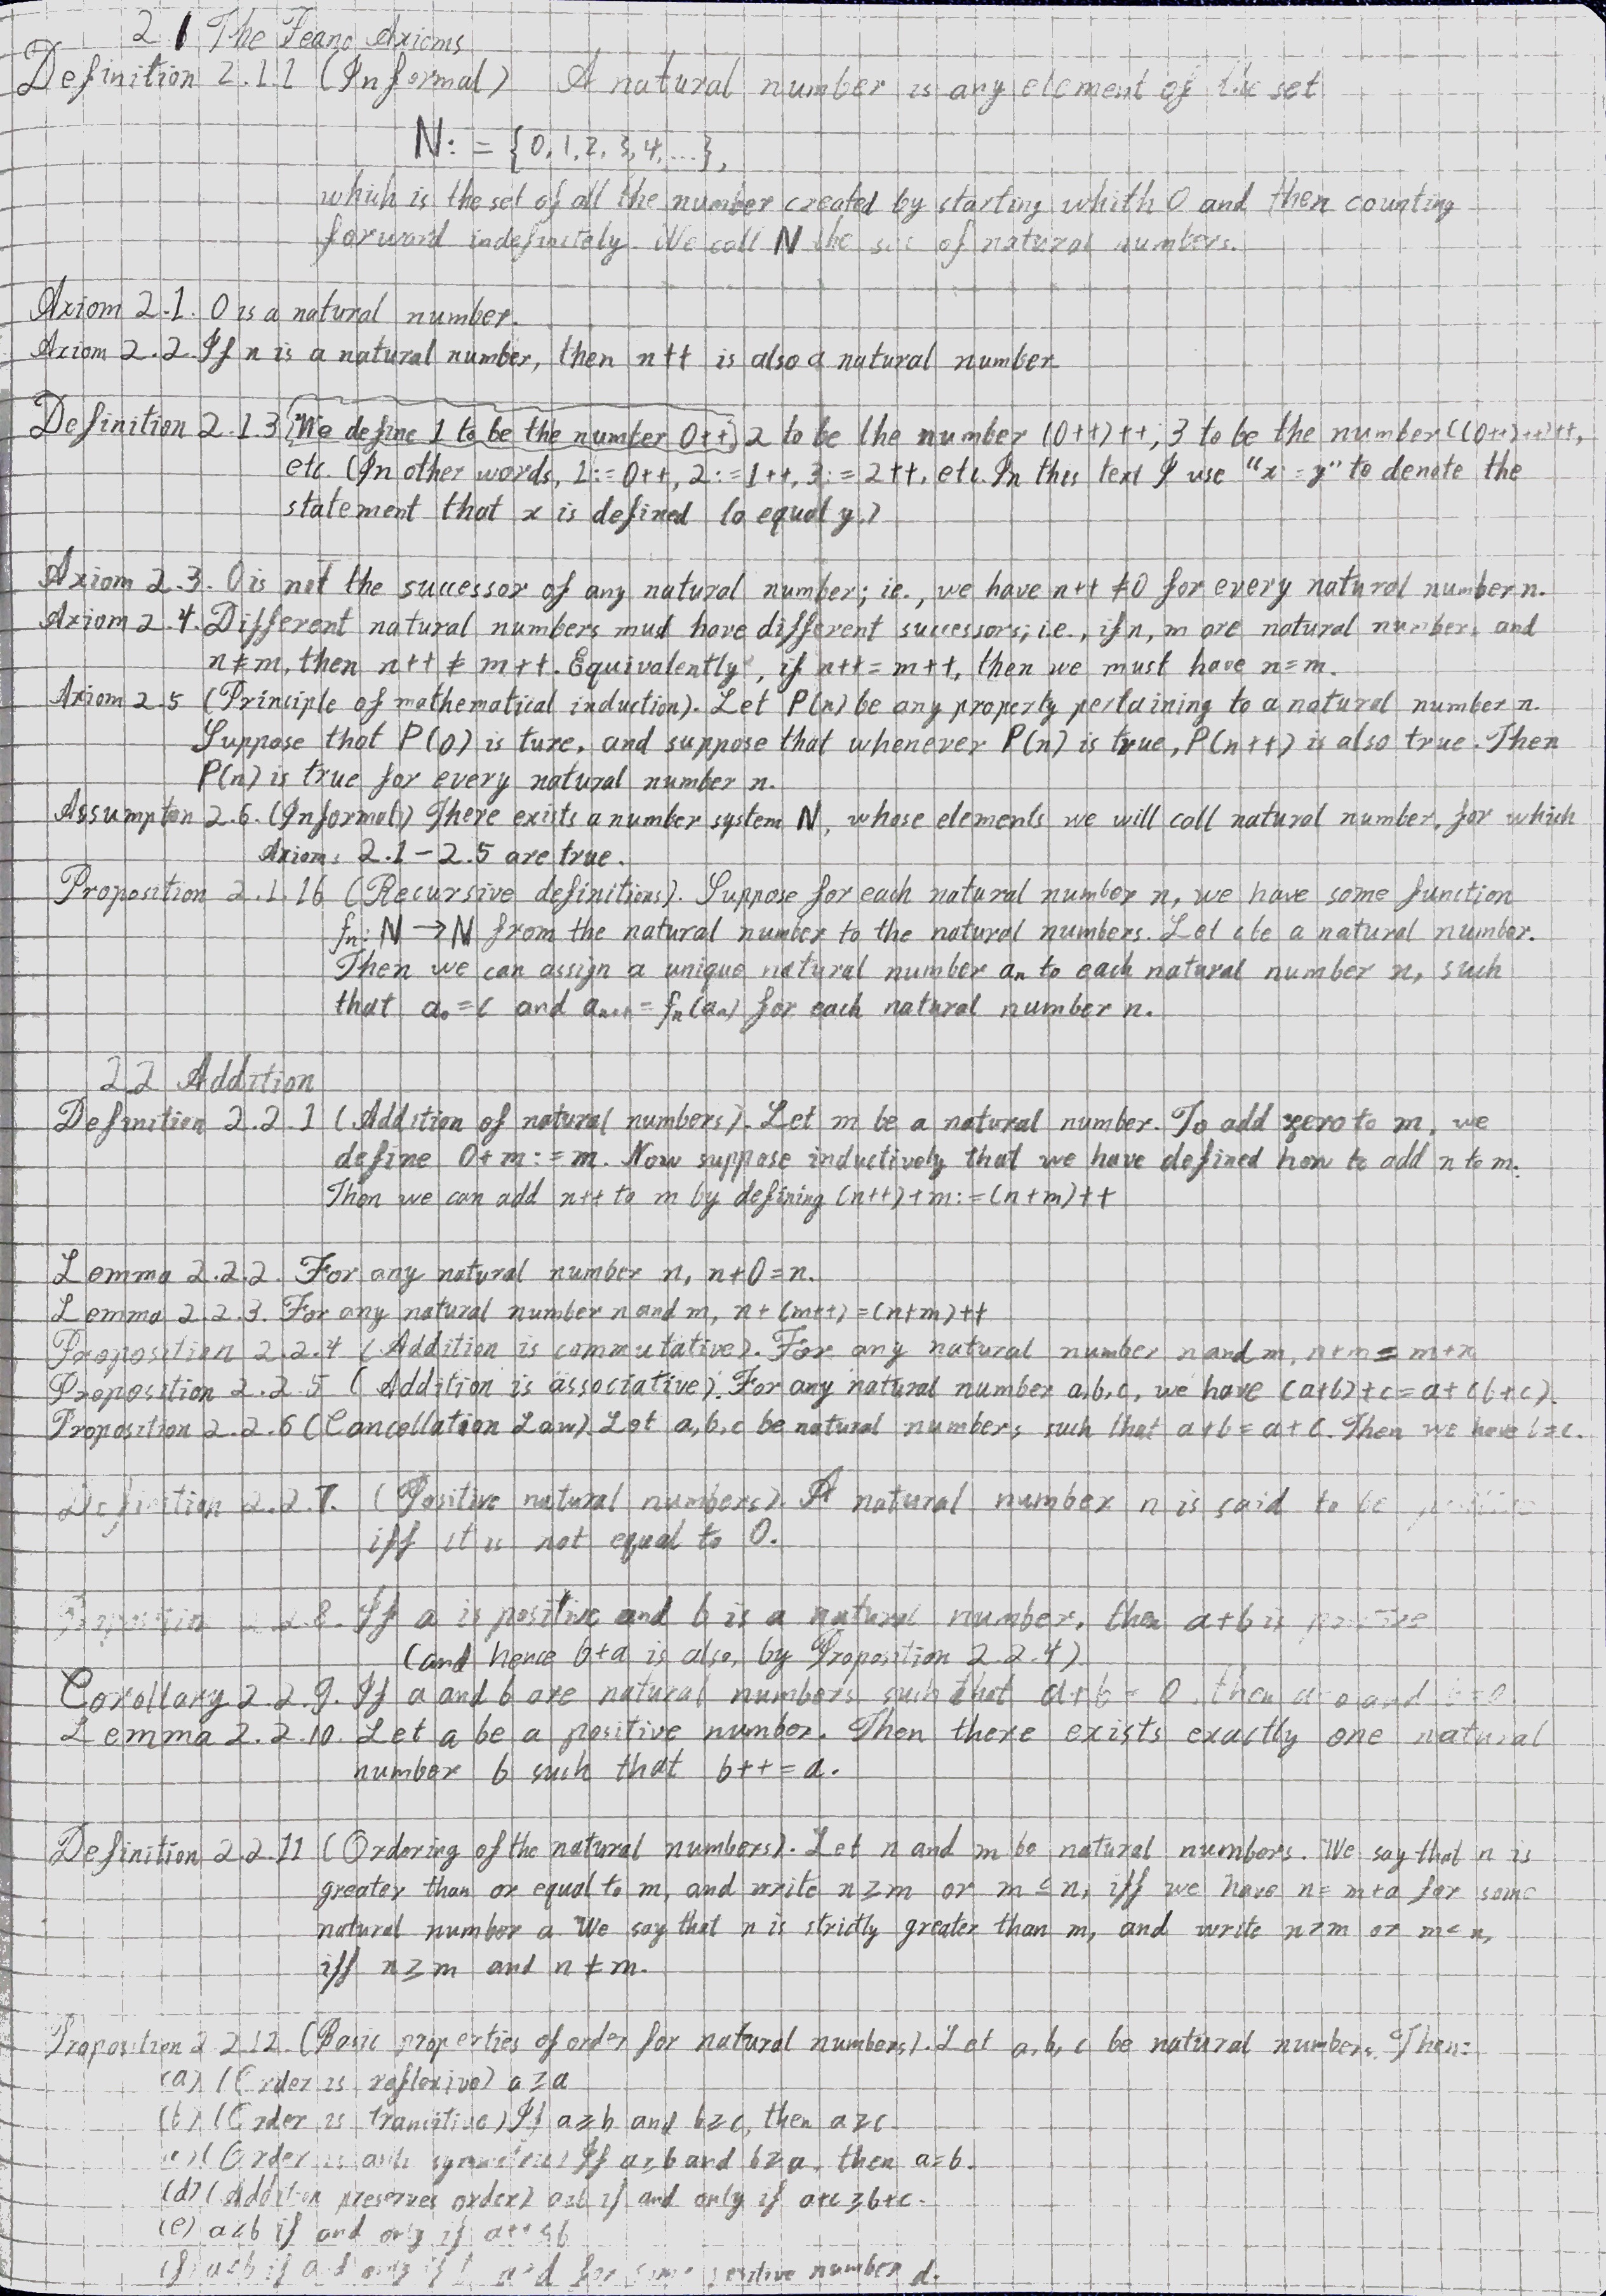 2.1 The Peano Axioms
Definition 2.1.1 (Informal) A natural number is any element of the set
N: = {0, 1, 2, 3, 4, ...},
which is the set of all the number created by starting whith 0 and then counting
forward indefinitely. We call N the set of natural numbers.
Axiom 2.1. 0 is a natural number.
Axiom 2.2. If n is a natural number, then n++ is also a natural number
Definition 2.1.3 We define 1 to be the number 0++, 2 to be the number (0++)++, 3 to be the number ((0++)++)++,
etc. (In other words, 1:=0++, 2:=1++, 3:=2++, etc. In this text I use "x:=y" to denote the
statement that x is defined to equal y.)
Axiom 2.3. 0 is not the successor of any natural number; ie., we have n++ ≠ 0 for every natural number n.
Axiom 2.4. Different natural numbers must have different successors; i.e., if n, m are natural numbers and
n≠m, then n++ ≠ m++. Equivalently, if n++ = m++, then we must have n=m.
Axiom 2.5 (Principle of mathematical induction). Let P(n) be any property pertaining to a natural number n.
Suppose that P(0) is ture, and suppose that whenever P(n) is true, P(n++) is also true. Then
P(n) is true for every natural number n.
Assumpton 2.6. (Informal) There exists a number system N, whose elements we will call natural number, for which
Axioms 2.1 - 2.5 are true.
Proposition 2.1.16 (Recursive definitions). Suppose for each natural number n, we have some function
fn: N → N from the natural number to the natural numbers. Let c be a natural number.
Then we can assign a unique natural number an to each natural number n, such
that a0 = c and an++ = fn(an) for each natural number n.
2.2 Addition
Definition 2.2.1 (Addition of natural numbers). Let m be a natural number. To add zero to m, we
define 0+m:=m. Now suppose inductively that we have defined how to add n to m.
Then we can add n++ to m by defining (n++)+m:=(n+m)++
Lemma 2.2.2. For any natural number n, n+0=n.
Lemma 2.2.3. For any natural number n and m, n+(m++)=(n+m)++
Proposition 2.2.4 (Addition is commutative). For any natural number n and m, n+m = m+n
Proposition 2.2.5 (Addition is associative). For any natural number a,b,c, we have (a+b)+c=a+(b+c).
Proposition 2.2.6 (Cancellation Law). Let a,b,c be natural numbers such that a+b=a+c. Then we have b=c.
Definition 2.2.7. (Positive natural numbers). A natural number n is said to be positive
iff it is not equal to 0.
Proposition 2.2.8. If a is positive and b is a natural number, then a+b is positive
(and hence b+a is also, by Proposition 2.2.4).
Corollary 2.2.9. If a and b are natural numbers such that a+b = 0, then a=0 and b=0
Lemma 2.2.10. Let a be a positive number. Then there exists exactly one natural
number b such that b++ = a.
Definition 2.2.11 (Ordering of the natural numbers). Let n and m be natural numbers. We say that n is
greater than or equal to m, and write n≥m or m≤n, iff we have n=m+a for some
natural number a. We say that n is strictly greater than m, and write n>m or m<n,
iff n≥m and n≠m.
Proposition 2.2.12. (Basic properties of order for natural numbers). Let a, b, c be natural numbers. Then:
(a) (Order is reflexive) a≥a
(b) (Order is transitive) If a≥b and b≥c, then a≥c
(c) (Order is anti symmetric) If a≥b and b≥a, then a=b.
(d) (Addition preserves order) a≥b if and only if a+c≥b+c.
(e) a<b if and only if a++≤b
(f) a<b if and only if b a+d for some positive number d.